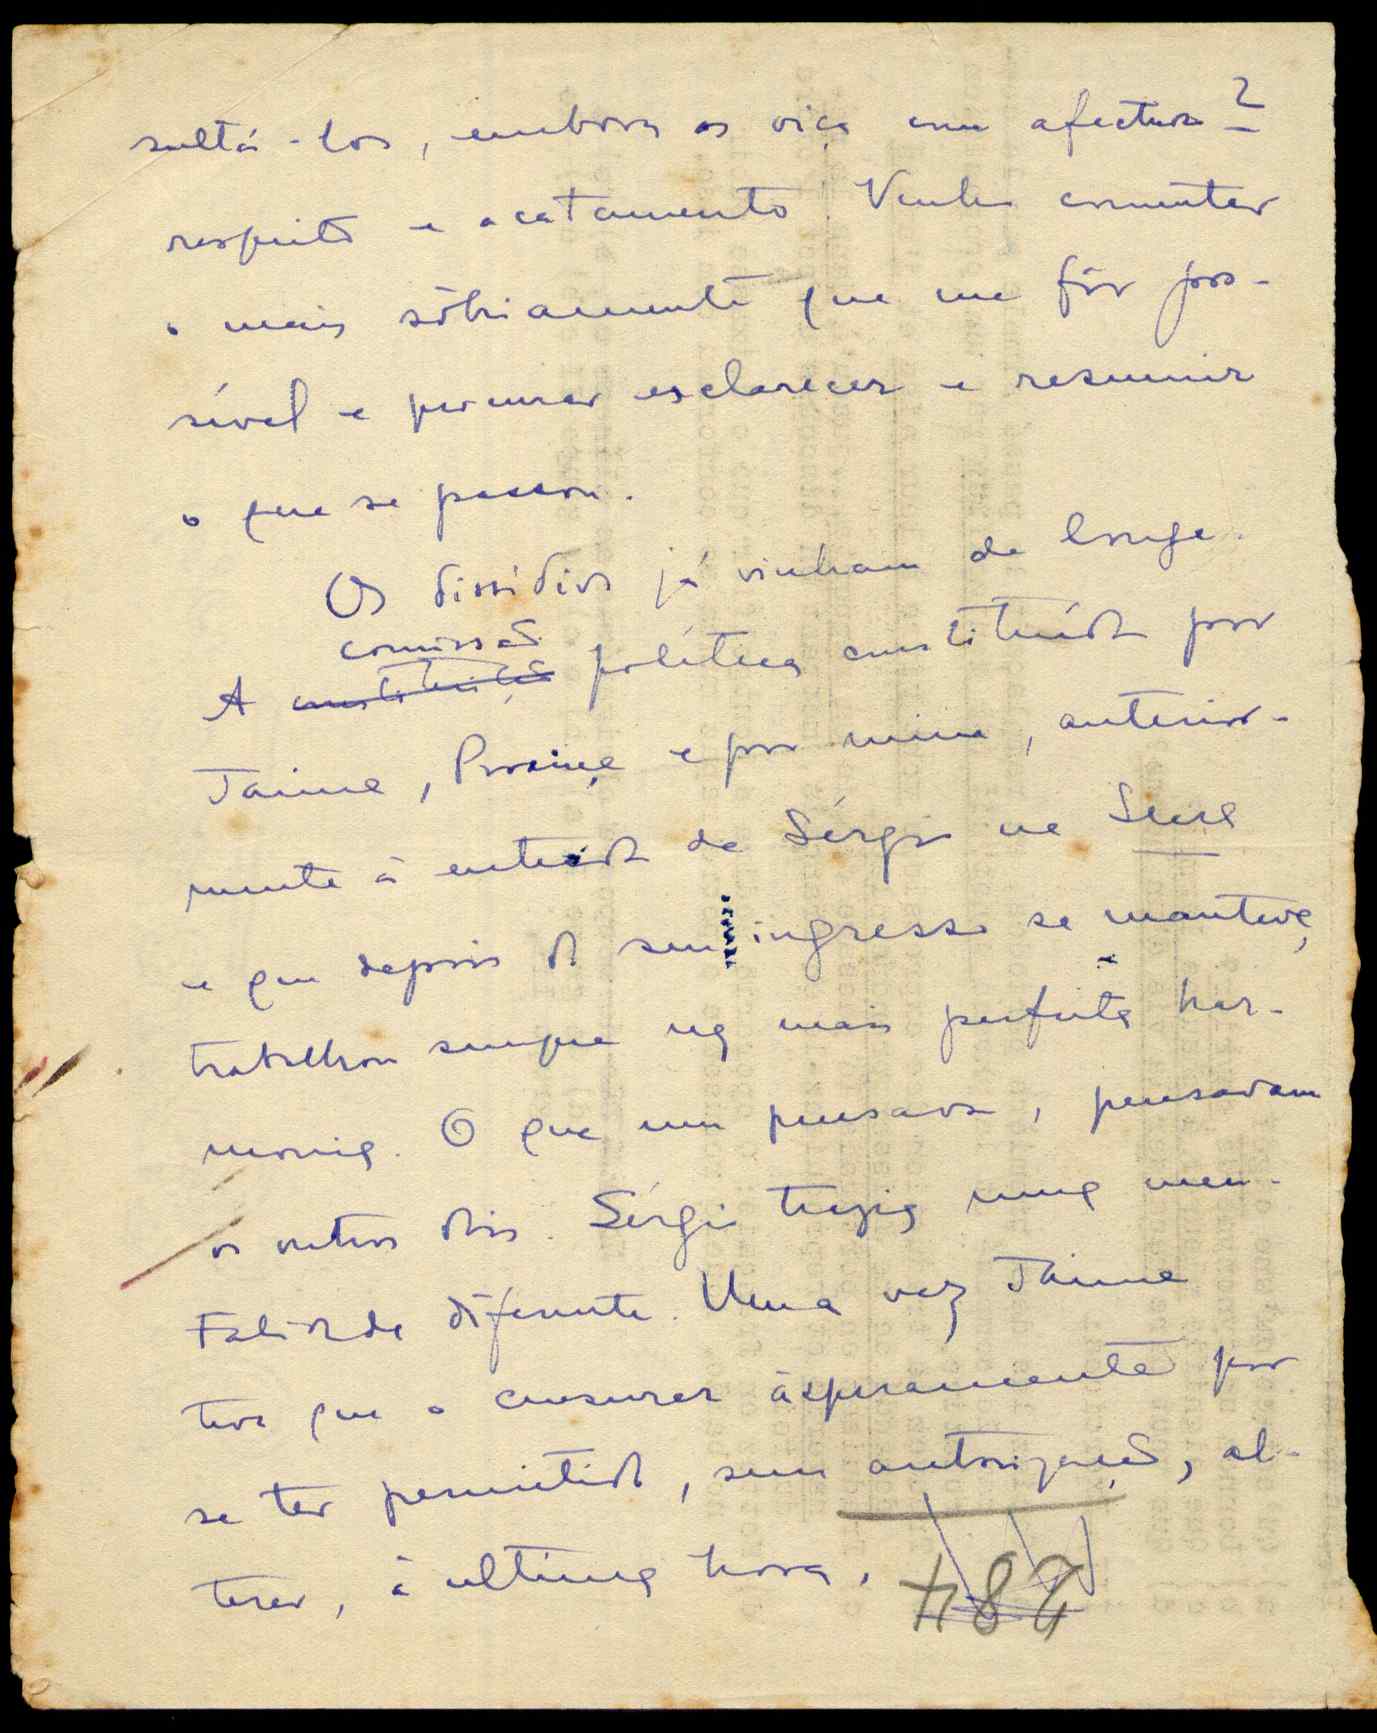 2
sultá-los, embora os oiça com afectuoso
respeito e acatamento. Venho comentar
o mais sòbriamente que me fôr pos-
sível e procurar esclarecer e resumir
o que se passou.
Os dissídios já vinham de longe.
comissão
A constituição política constituída por
Jaime, Proença e por mim, anterior-
mente à entrada de Sérgio na Seara
e que depois do seu ingresso se manteve,
trabalhou sempre na mais perfeita har-
monia. O que um pensava, pensavam
os outros dois. Sérgio trazia uma men-
talidade diferente. Uma vez Jaime
teve que o censurar àsperamente por
se ter permitido, sem autorização, al-
terar, à ultima hora,
784